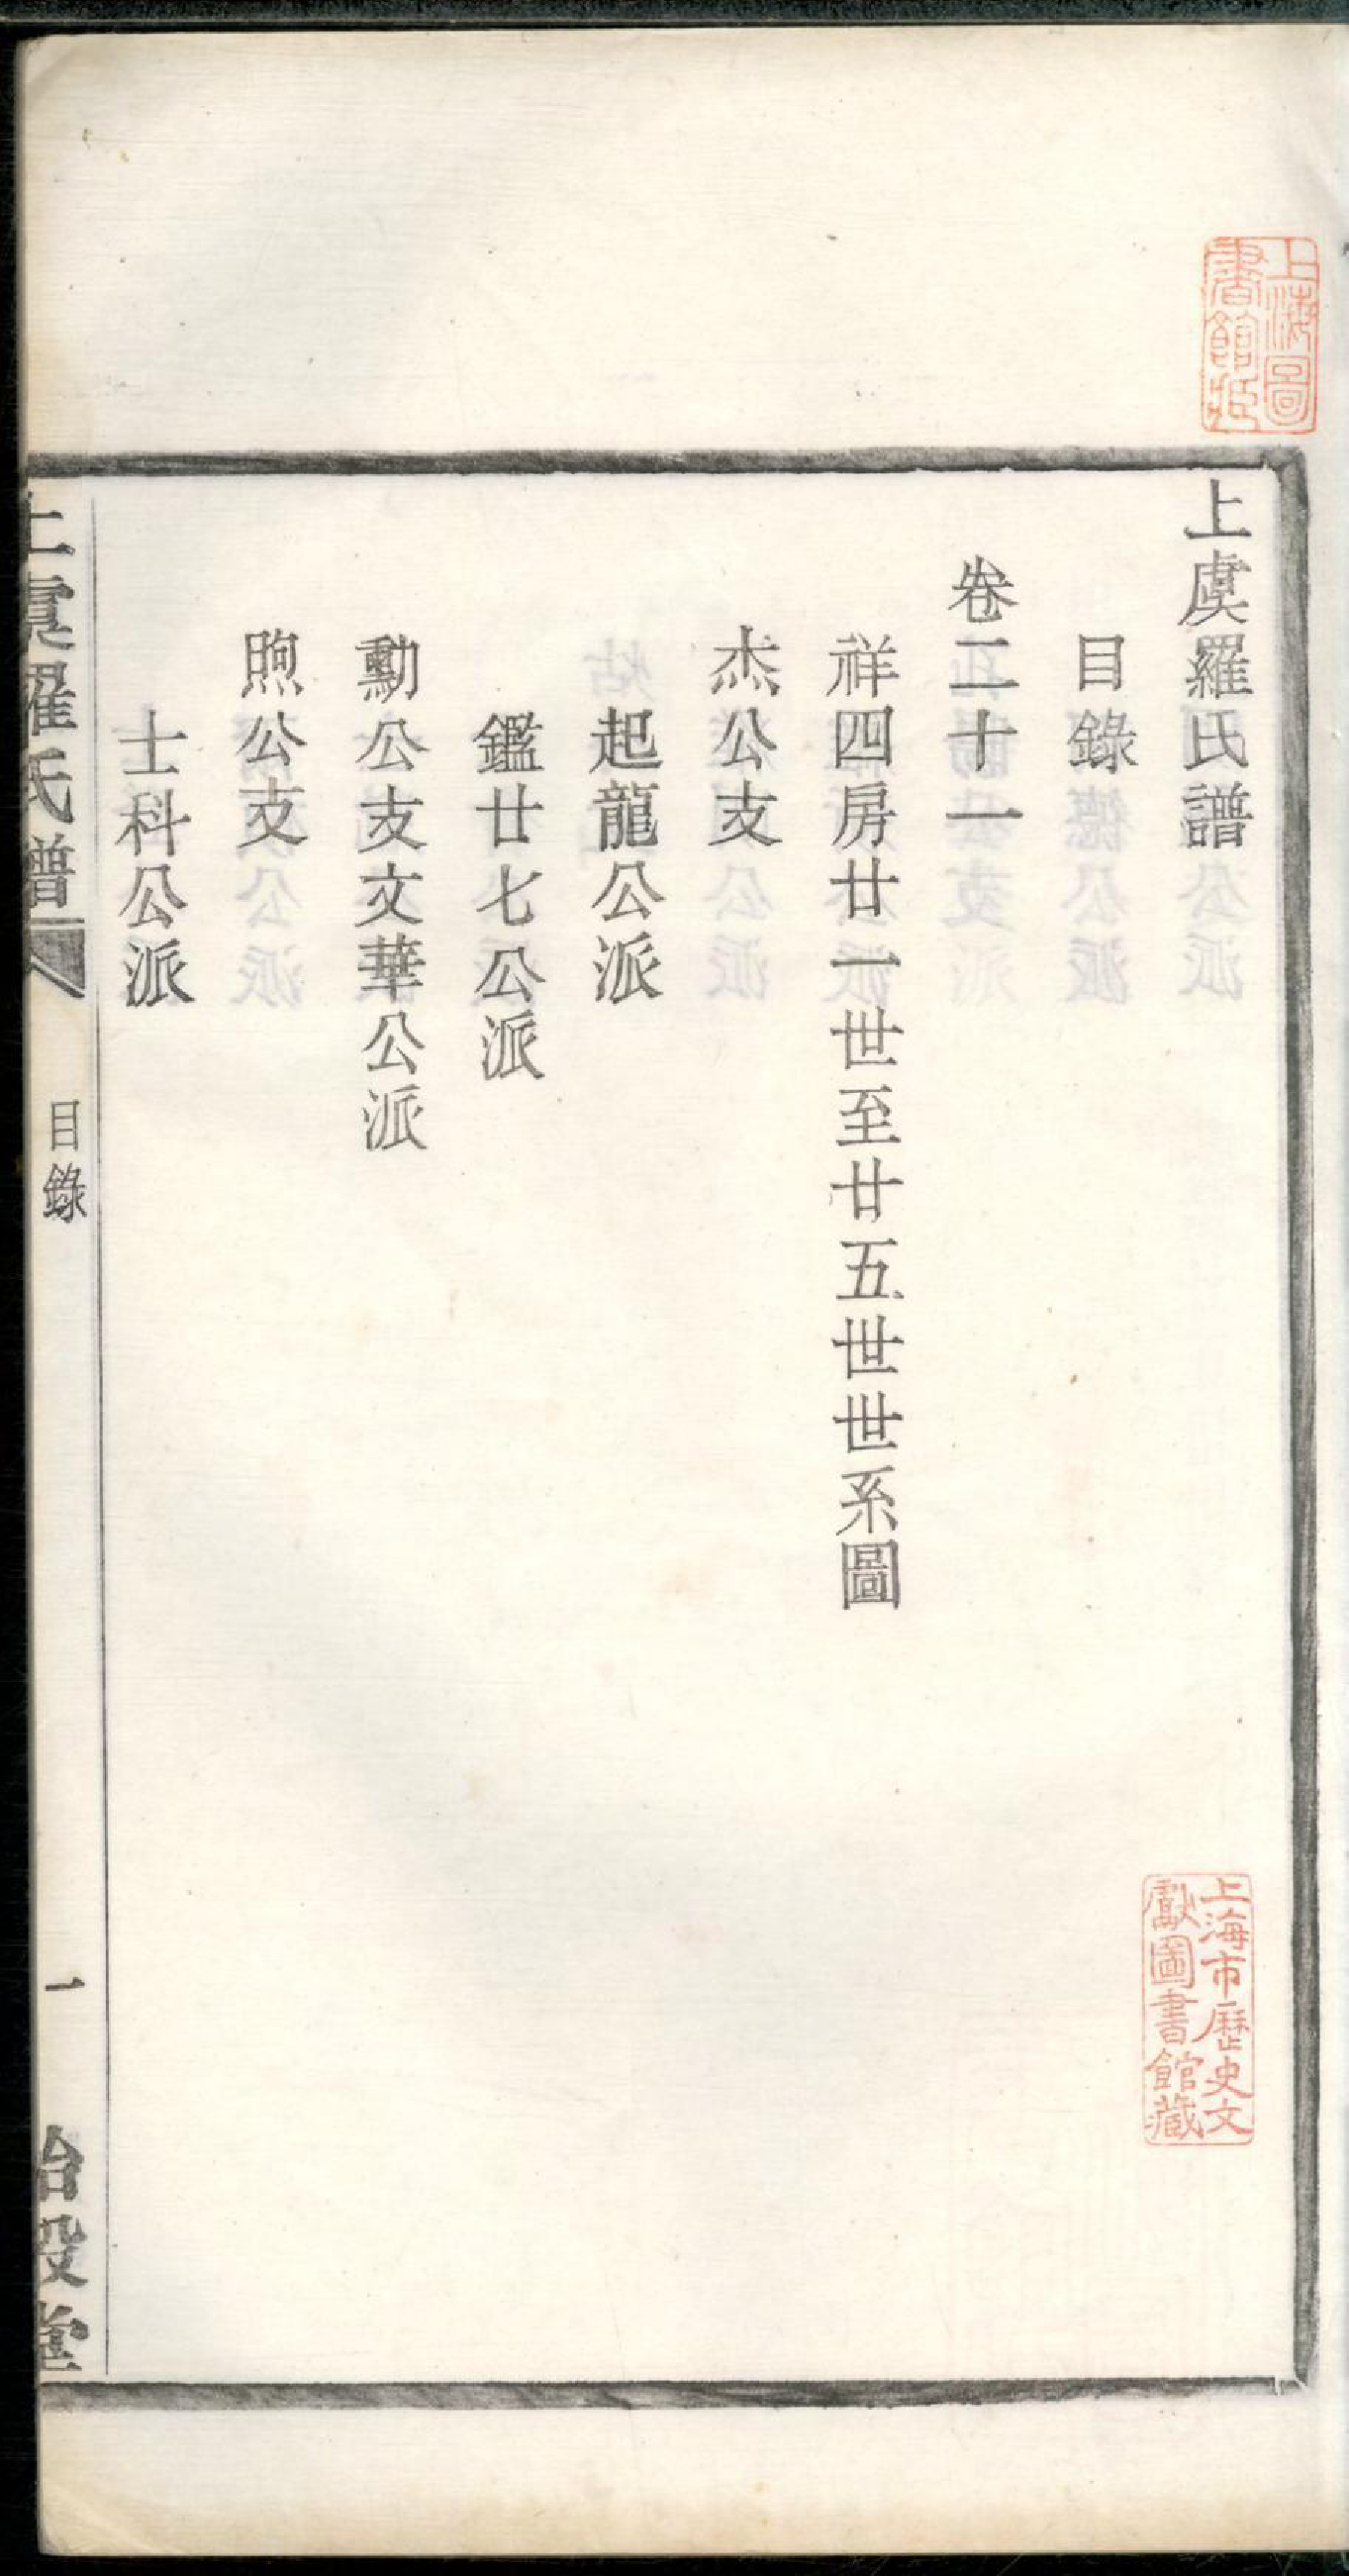 上虞羅氏譜
目錄
卷二十一
祥四房廿一世至廿五世世系圖
杰公支
起龍公派
鑑廿七公派
勳公支文華公派
煦公支
士科公派
上虞羅氏譜
目錄
一
上海圖書館藏
上海市歷史文獻圖書館藏